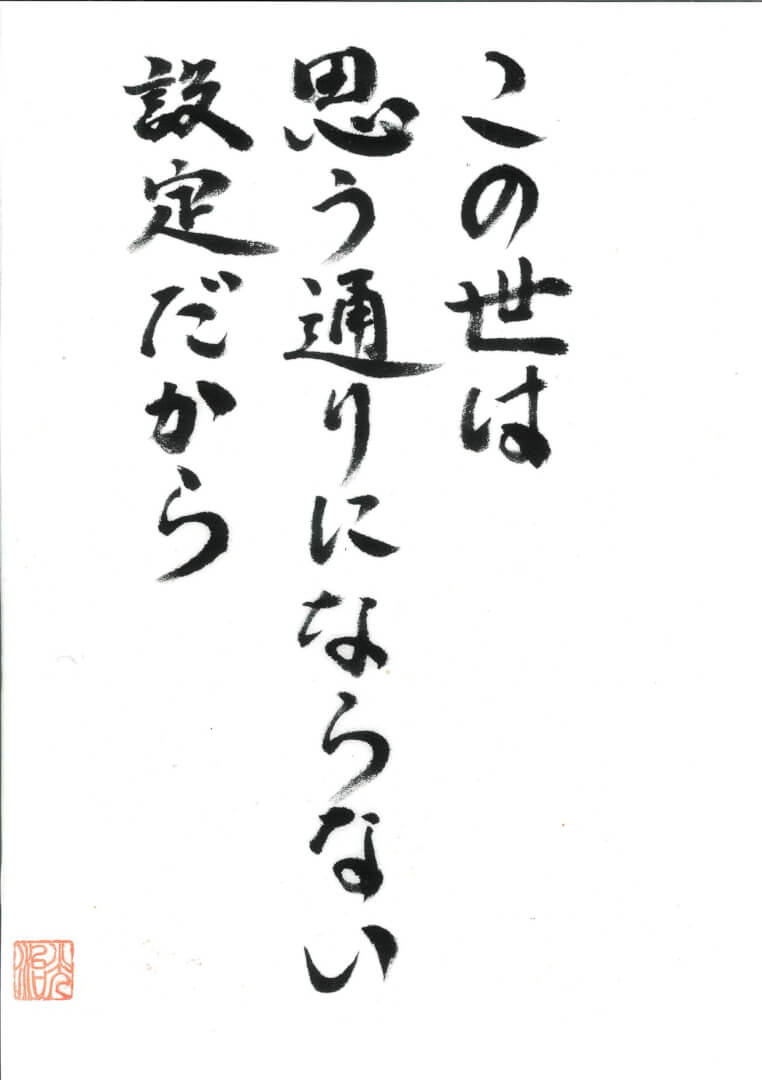 この世は
思う通りにならない
設定だから